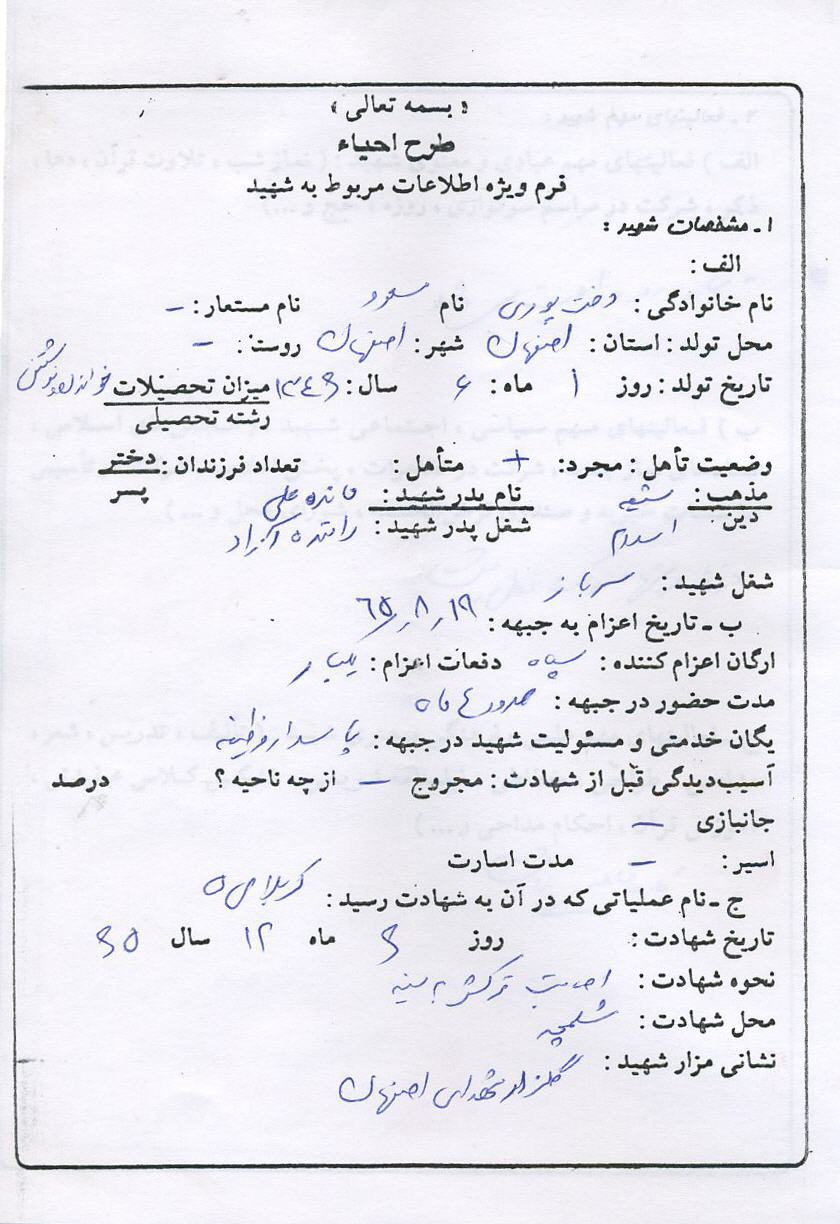 « بسمه تعالی »
طرح احیاء
فرم ویژه اطلاعات مربوط به شهید
۱ ـ مشخصات شهید :
الف :
نام خانوادگی : دخت پوری نام مسعود نام مستعار : –
محل تولد : استان : اصفهان شهر : اصفهان روستا : –
تاریخ تولد : روز ۱ ماه : ۶ سال : ۱۳۴۶ میزان تحصیلات خواندن و نوشتن
رشته تحصیلی
وضعیت تأهل : مجرد : + متأهل : تعداد فرزندان : دختر
پسر
مذهب : شیعه نام پدر شهید : علی
دین اسلام شغل پدر شهید : راننده آزاد
شغل شهید : سرباز
ب ـ تاریخ اعزام به جبهه : ۶۵٫۸٫۱۹
ارگان اعزام کننده : سپاه دفعات اعزام : یکبار
مدت حضور در جبهه : حدود ۴ ماه
یگان خدمتی و مسئولیت شهید در جبهه : پاسدار وظیفه
آسیب‌دیدگی قبل از شهادت : مجروح – از چه ناحیه ؟ درصد
جانبازی –
اسیر : – مدت اسارت
ج ـ نام عملیاتی که در آن به شهادت رسید : کربلای ۵
تاریخ شهادت : روز ۶ ماه ۱۲ سال ۶۵
نحوه شهادت : اصابت ترکش به سینه
محل شهادت : شلمچه
نشانی مزار شهید : گلزار شهدای اصفهان